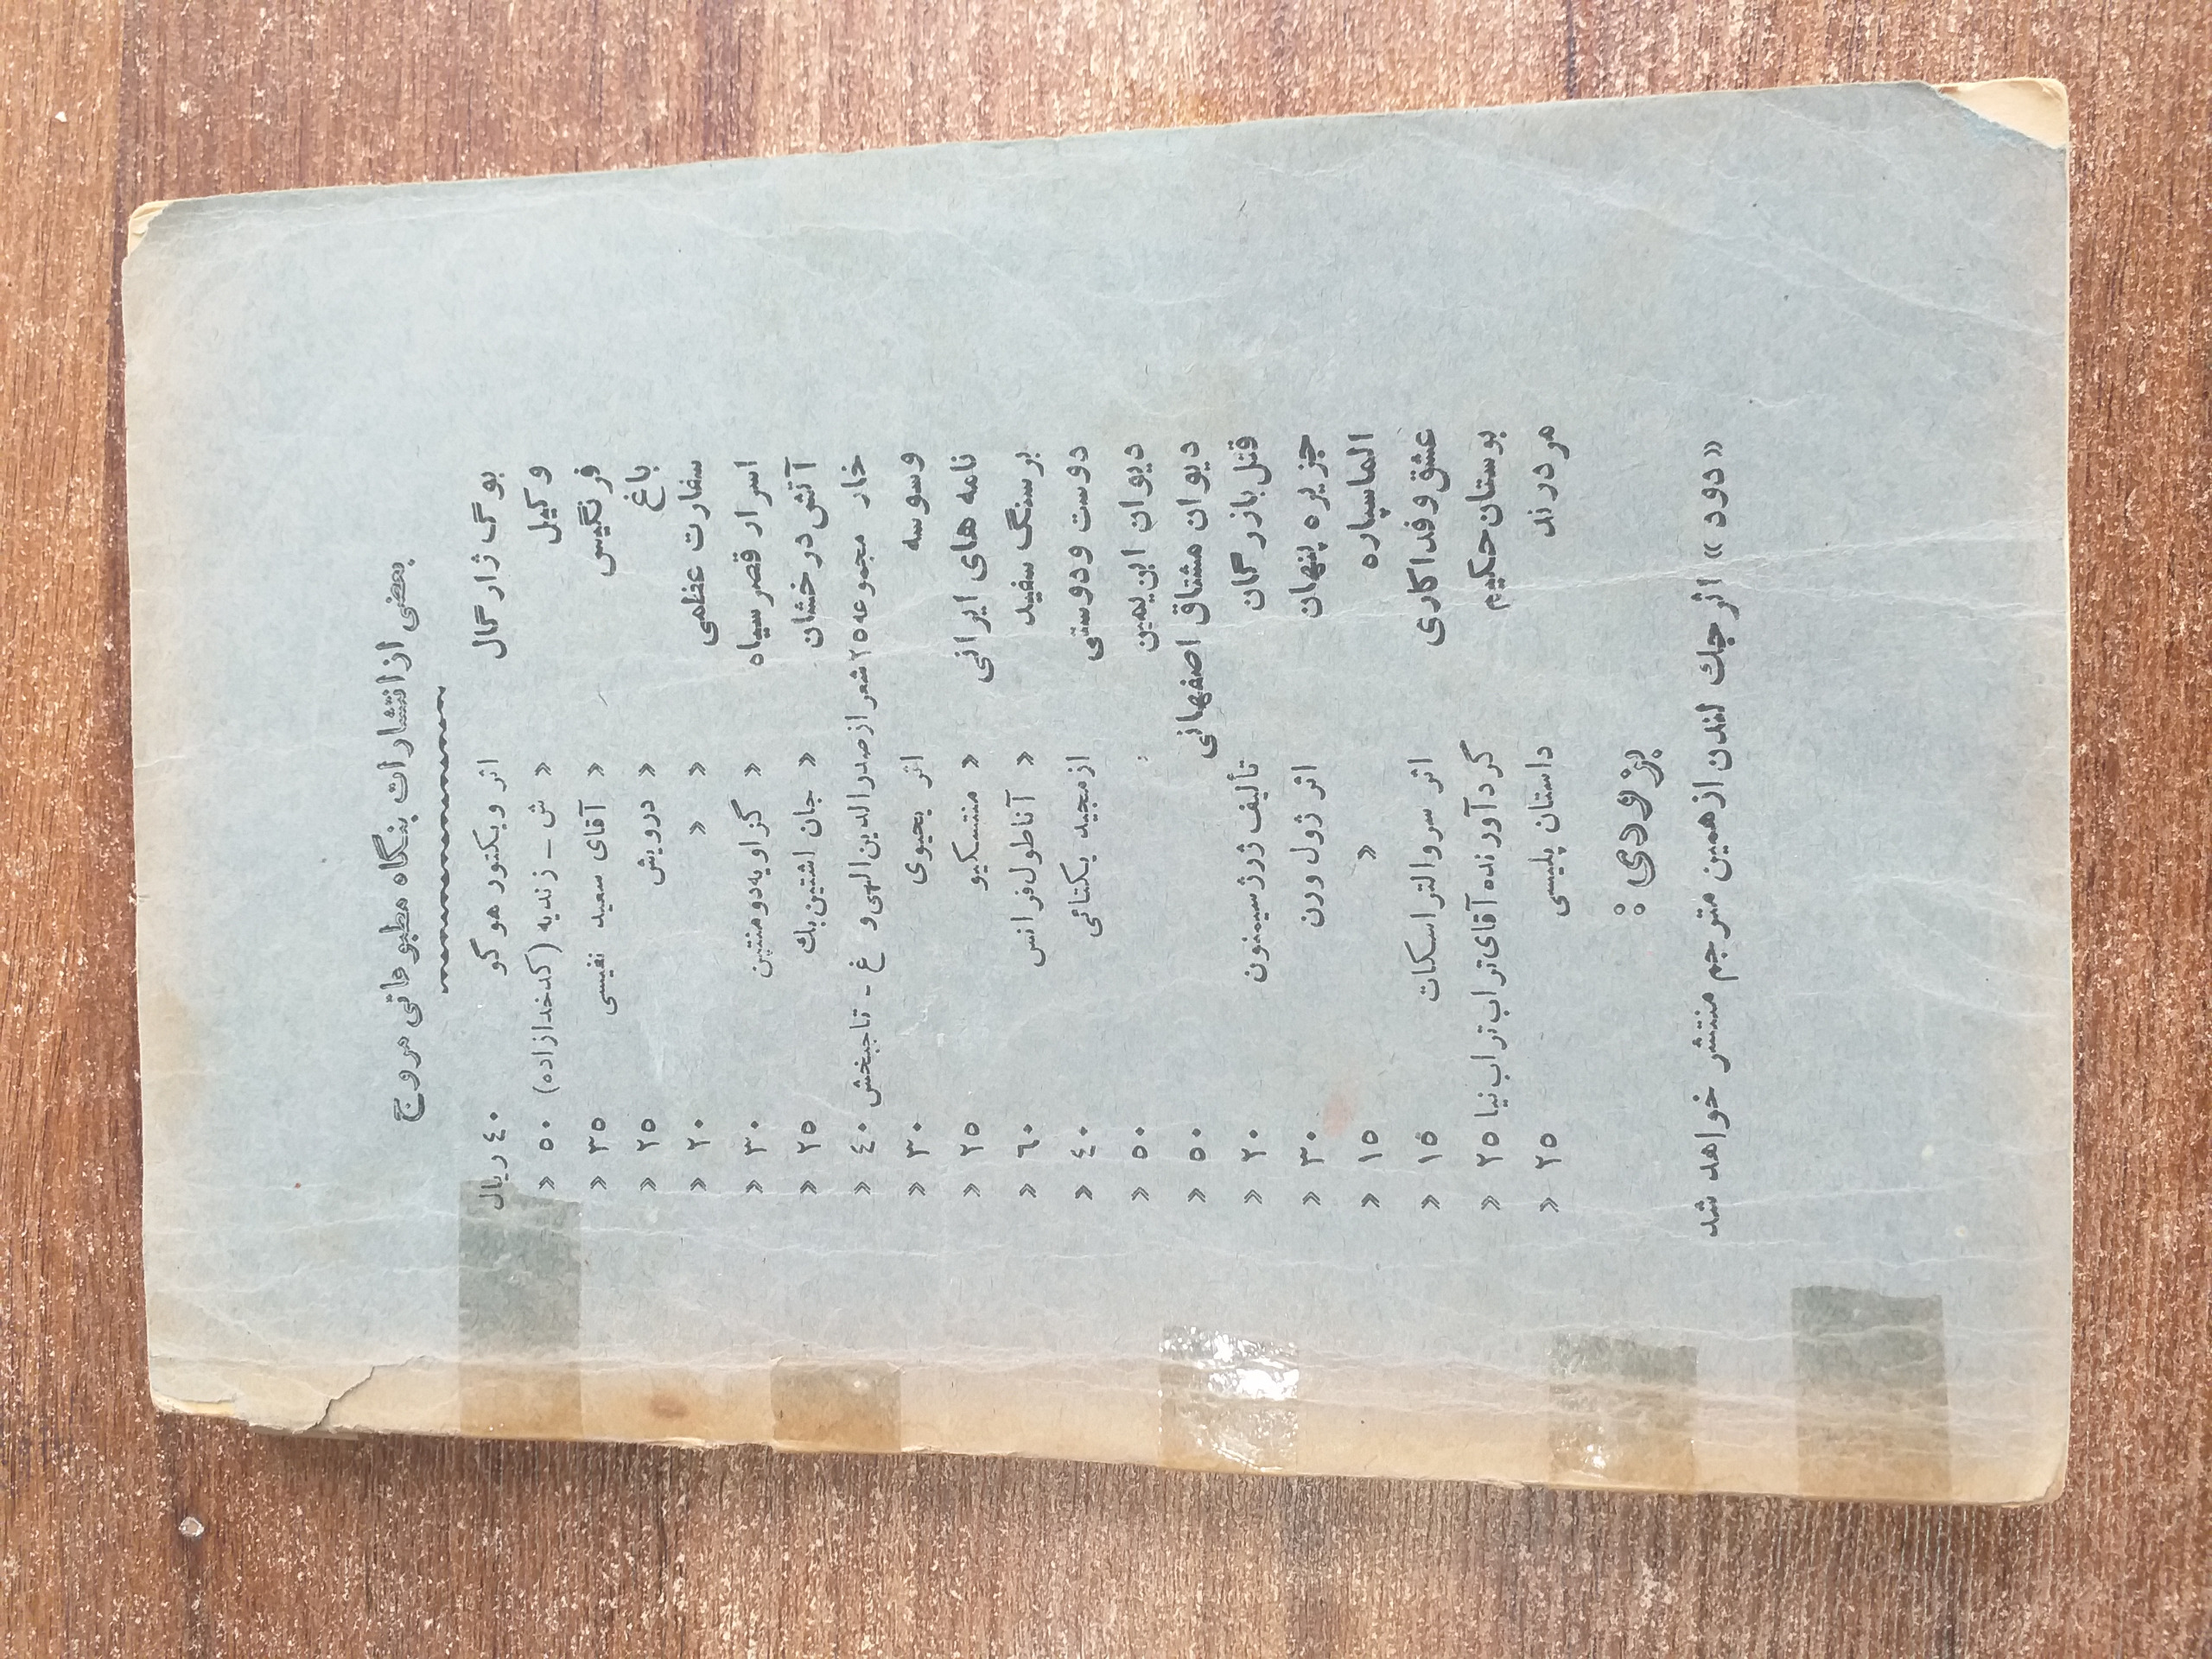 بعضی از انتشارات بنگاه مطبوعاتی مروج
بوگ ژارگال اثر ویکتور هوگو ٤٠ ریال
وکیل » ش – زندیه (کدخدازاده) ٥٠ »
فرنگیس » آقای سعید نفیسی ٣٥ »
باغ » درویش ٢٥ »
سفارت عظمی » » ٢٠ »
اسرار قصر سیاه » گزاویه دومنتپن ٣٠ »
آتش درخشان » جان اشتین بك ٢٥ »
خمار مجموعه ٢٥ شعر از صدرالدین الهی و غ - تاجبخش ٤٠ »
وسوسه اثر یحیوی ٣٠ »
نامه های ایرانی » منتسکیو ٢٥ »
بر سنگ سفید » آناطول فرانس ٦٠ »
دوست و دوستی از مجید یکتائی ٤٠ »
دیوان ابن یمین ٥٠ »
دیوان مشتاق اصفهانی ٥٠ »
قتل بازرگان تألیف ژرژ سیمنون ٢٠ »
جزیره پنهان اثر ژول ورن ٣٠ »
الماسپاره » ١٥ »
عشق و فداکاری اثر سر والتر اسکات ١٥ »
بوستان حکیم گردآورنده آقای تراب تراب نیا ٢٥ »
مو درند داستان پلیسی ٢٥ »
بزودی :
«دود» اثر جك لندن از همین مترجم منتشر خواهد شد